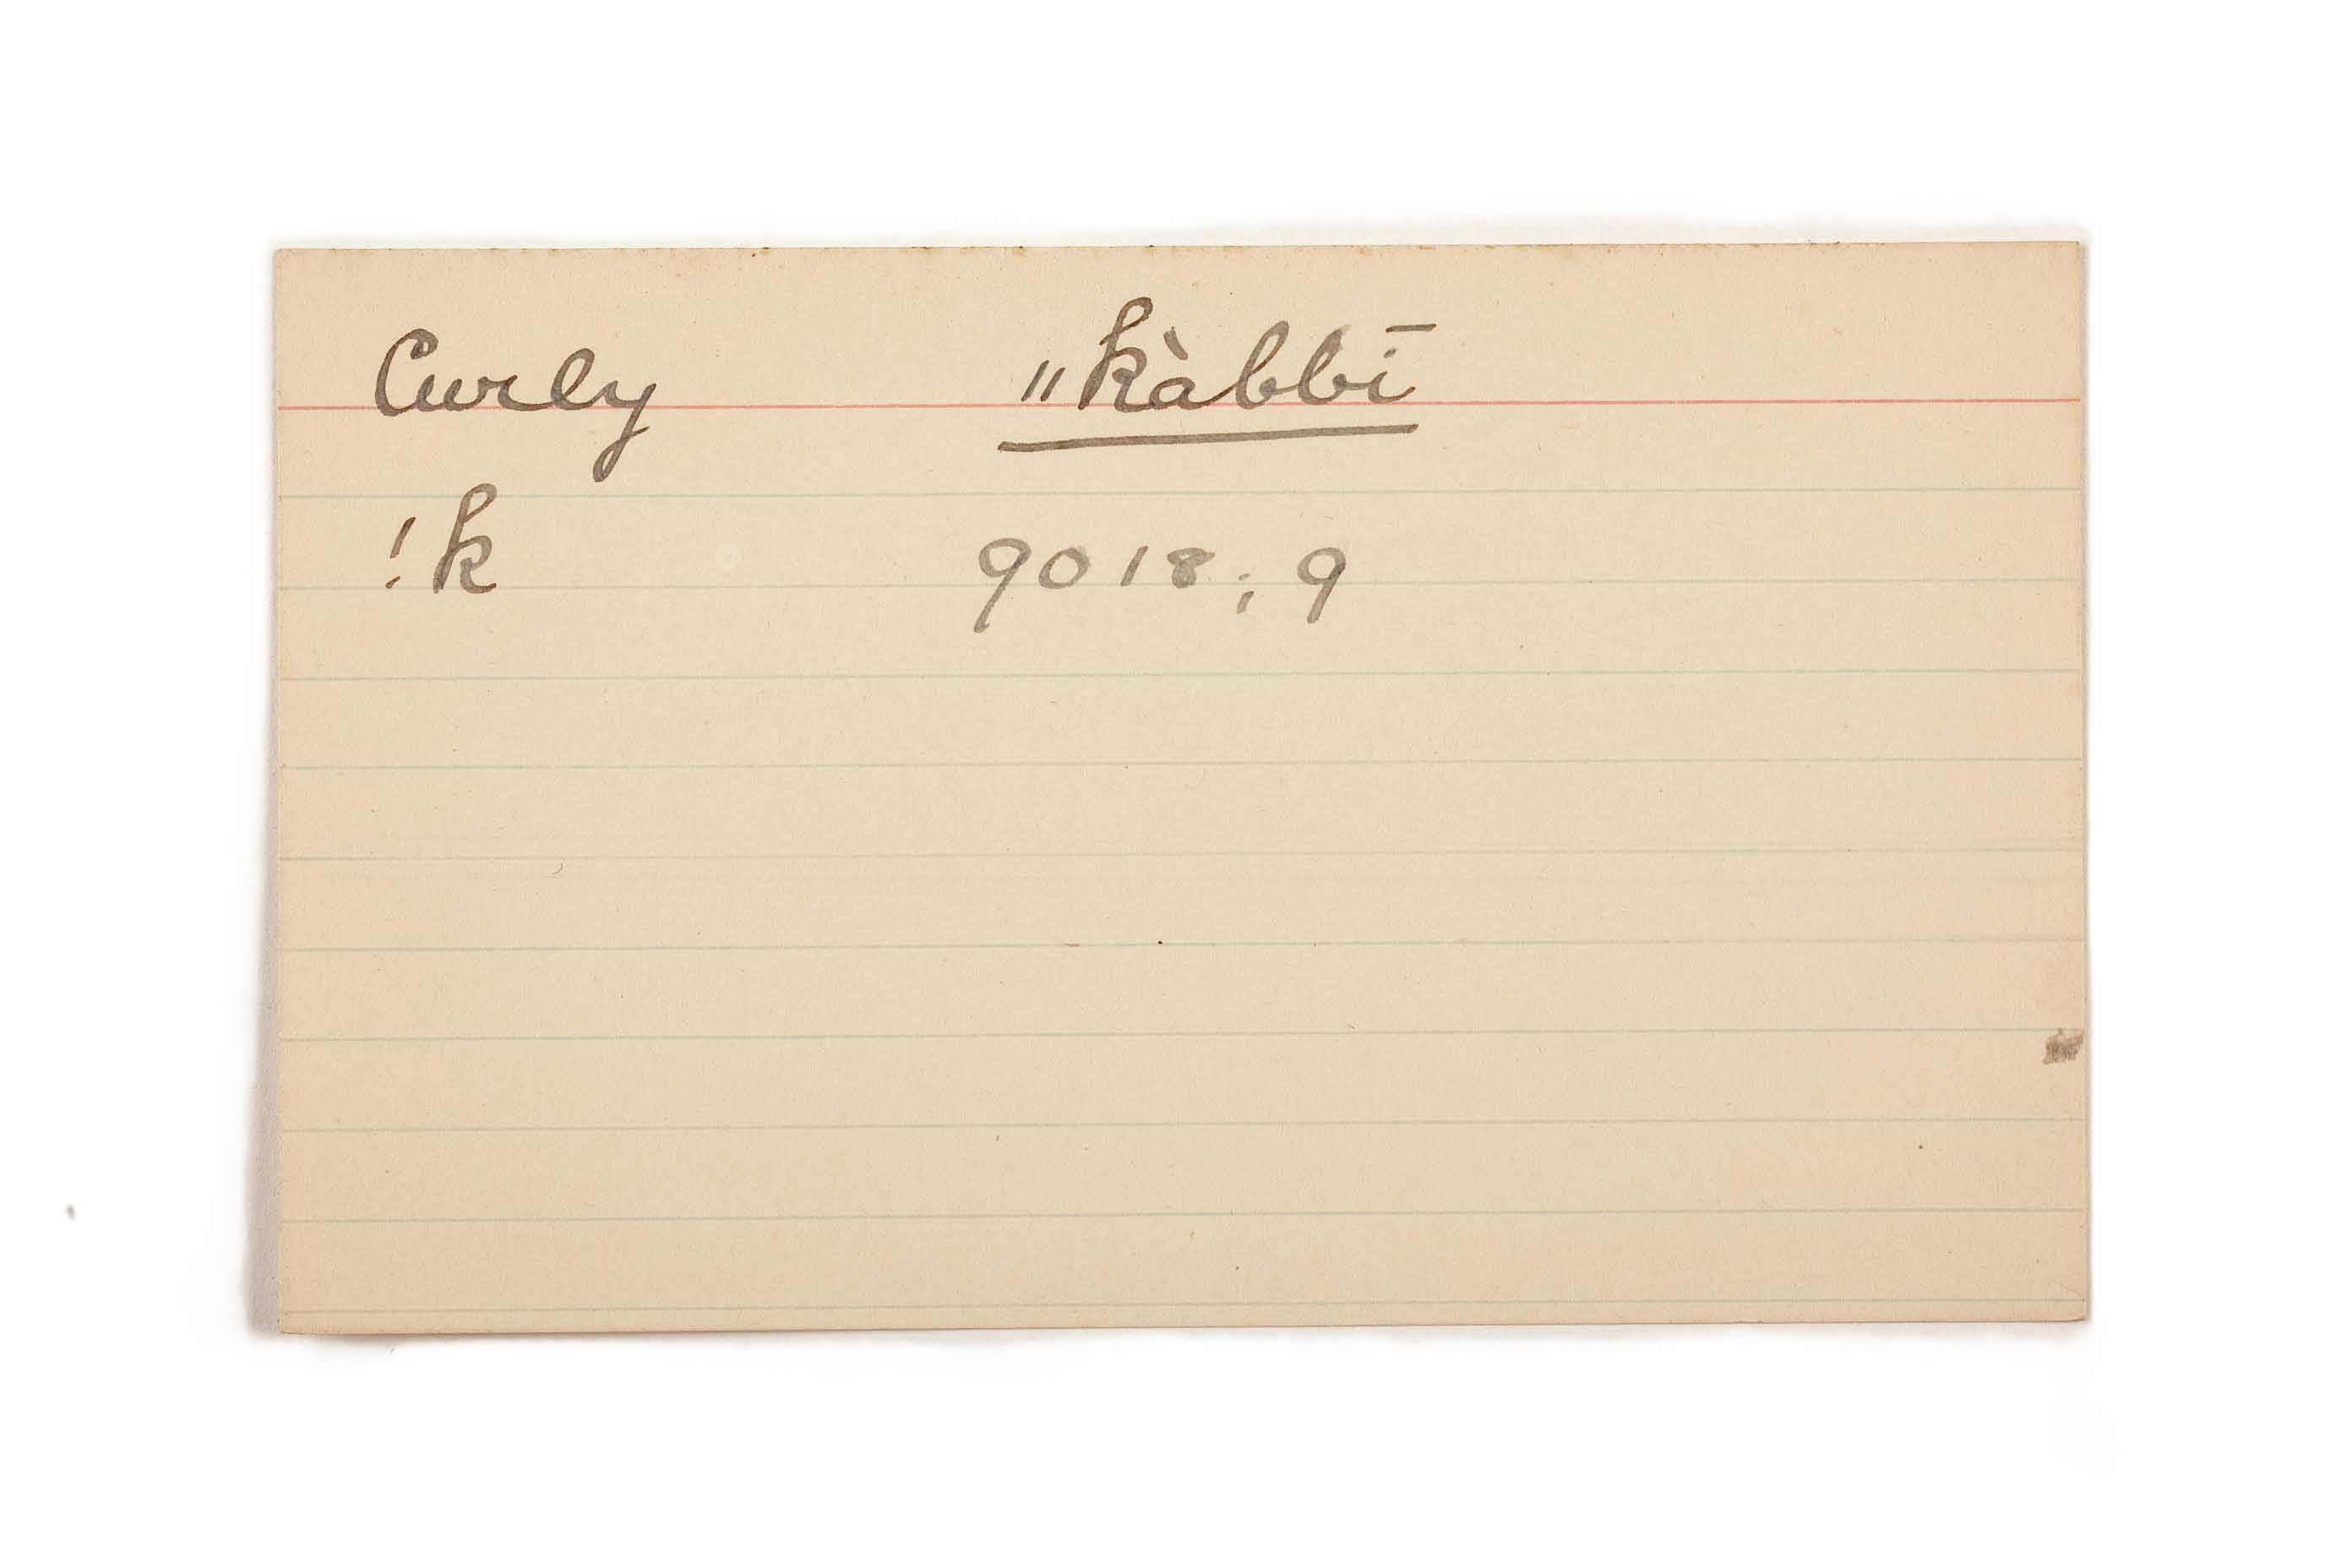 Curly "kàbbī
!k 9018; 9